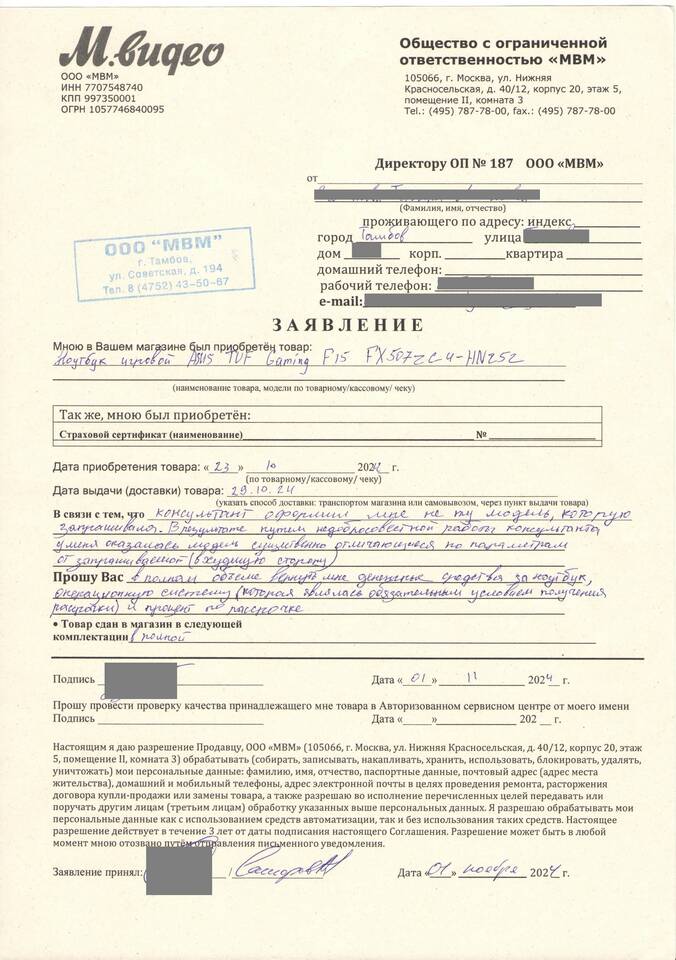 М.видео
ООО «МВМ»
ИНН 7707548740
КПП 997350001
ОГРН 1057746840095
Общество с ограниченной
ответственностью «МВМ»
105066, г. Москва, ул. Нижняя
Красносельская, д. 40/12, корпус 20, этаж 5,
помещение II, комната 3
Tel.: (495) 787-78-00, fax.: (495) 787-78-00
Директору ОП № 187 ООО «МВМ»
от
(Фамилия, имя, отчество)
проживающего по адресу: индекс
город Тамбов улица
дом корп. квартира
домашний телефон:
рабочий телефон:
e-mail:
ООО "МВМ"
г. Тамбов,
ул. Советская, д. 194
Тел. 8 (4752) 43-50-67
ЗАЯВЛЕНИЕ
Мною в Вашем магазине был приобретён товар:
Ноутбук игровой ASUS TUF Gaming F15 FX507ZC4-HN252
(наименование товара, модели по товарному/кассовому/ чеку)
Так же, мною был приобретён:
Страховой сертификат (наименование) №
Дата приобретения товара: «23» 10 2024 г.
(по товарному/кассовому/ чеку)
Дата выдачи (доставки) товара: 29.10.24
(указать способ доставки: транспортом магазина или самовывозом, через пункт выдачи товара)
В связи с тем, что консультант оформил мне не ту модель, которую
запрашивал. В результате путем недобросовестной работы консультанта
у меня оказалась модель существенно отличающиеся по параметрам
от запрашиваемой (в худшую сторону)
Прошу Вас в полном объеме вернуть мне денежные средства за ноутбук,
операционную систему (которая являлась обязательным условием получения
рассрочки) и процент по рассрочке
• Товар сдан в магазин в следующей
комплектации в полной
Подпись Дата «01» 11 2024 г.
Прошу провести проверку качества принадлежащего мне товара в Авторизованном сервисном центре от моего имени
Подпись Дата « » 202 г.
Настоящим я даю разрешение Продавцу, ООО «МВМ» (105066, г. Москва, ул. Нижняя Красносельская, д. 40/12, корпус 20, этаж
5, помещение II, комната 3) обрабатывать (собирать, записывать, накапливать, хранить, использовать, блокировать, удалять,
уничтожать) мои персональные данные: фамилию, имя, отчество, паспортные данные, почтовый адрес (адрес места
жительства), домашний и мобильный телефоны, адрес электронной почты в целях проведения ремонта, расторжения
договора купли-продажи или замены товара, а также разрешаю во исполнение перечисленных целей передавать или
поручать другим лицам (третьим лицам) обработку указанных выше персональных данных. Я разрешаю обрабатывать мои
персональные данные как с использованием средств автоматизации, так и без использования таких средств. Настоящее
разрешение действует в течение 3 лет от даты подписания настоящего Соглашения. Разрешение может быть в любой
момент мною отозвано путём отправления письменного уведомления.
Заявление принял: / Дата «01» ноября 2024 г.